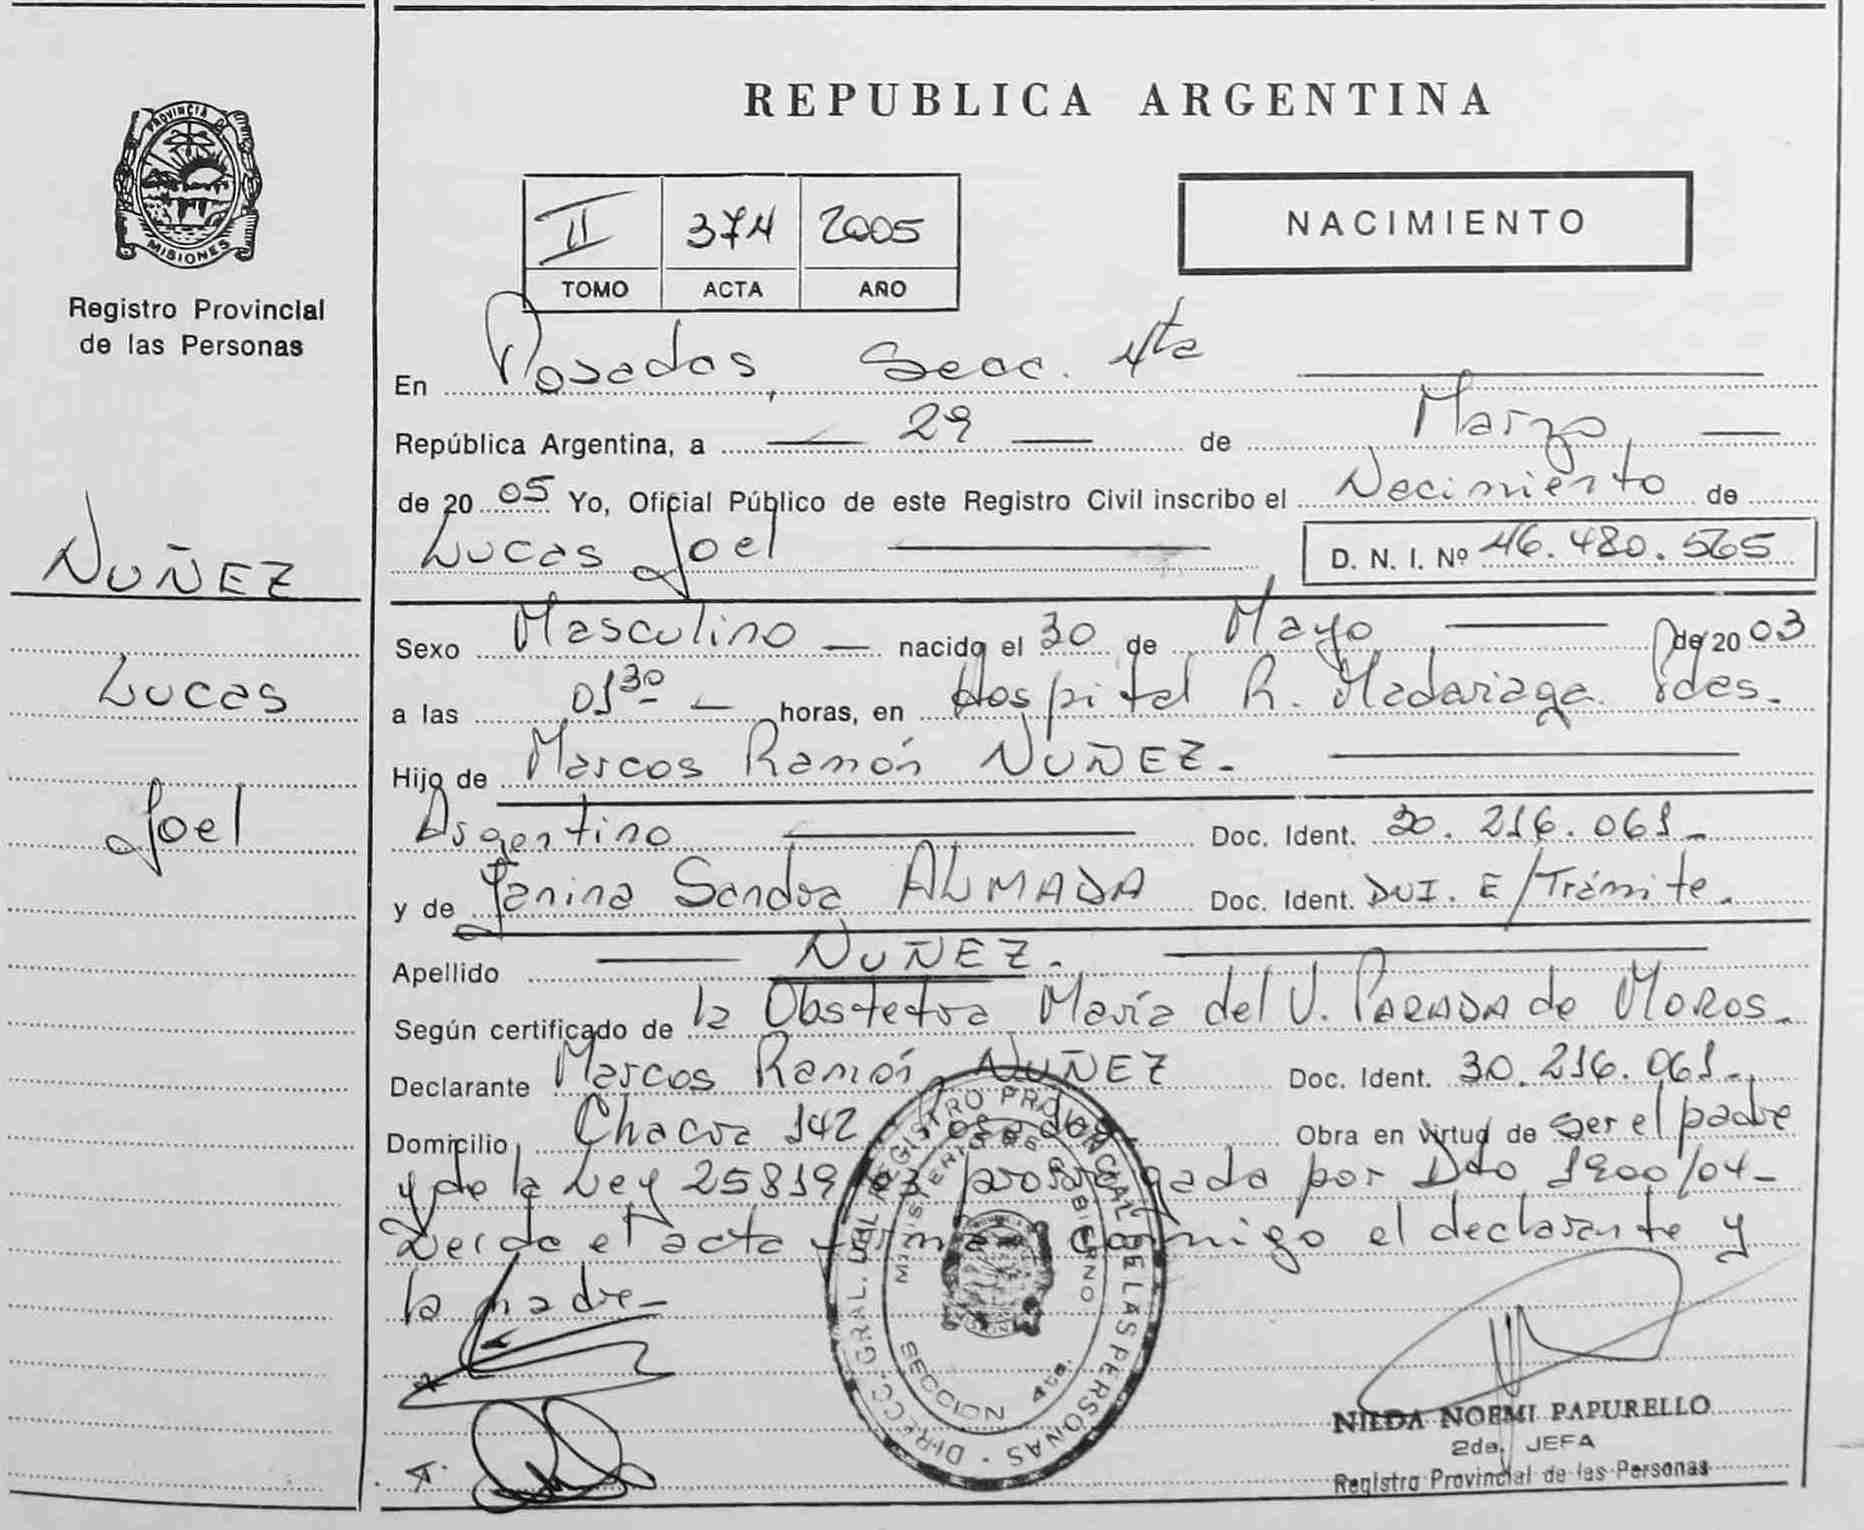 PROVINCIA DE
MISIONES
Registro Provincial
de las Personas
NUÑEZ
Lucas
Joel
REPUBLICA ARGENTINA
II 374 2005
TOMO ACTA AÑO
NACIMIENTO
En Posadas, Secc. 4ta
República Argentina, a 29 de Marzo
de 2005 Yo, Oficial Público de este Registro Civil inscribo el Nacimiento de
Lucas Joel D. N. I. Nº 46.480.565
Sexo Masculino nacido el 30 de Mayo de 2003
a las 01 30 horas, en Hospital R. Madariaga. Pdas.
Hijo de Marcos Ramón NUÑEZ.
Argentino Doc. Ident. 30.216.061
y de Yanina Sandra ALMADA Doc. Ident. DNI. E/Trámite.
Apellido NUÑEZ.
Según certificado de la Obstetra María del V. PARADA de MOROS.
Declarante Marcos Ramón NUÑEZ Doc. Ident. 30.216.061
Domicilio Chacra 142 Posadas Obra en virtud de ser el padre
y de la Ley 25819/03 prorrogada por Dto 1900/04
Leida el acta firman conmigo el declarante y
la madre
DIRECC. GRAL. DEL REGISTRO PROVINCIAL DE LAS PERSONAS
MINISTERIO DE GOBIERNO
SECCION 4ta.
NILDA NOEMI PAPURELLO
2da. JEFA
Registro Provincial de las Personas